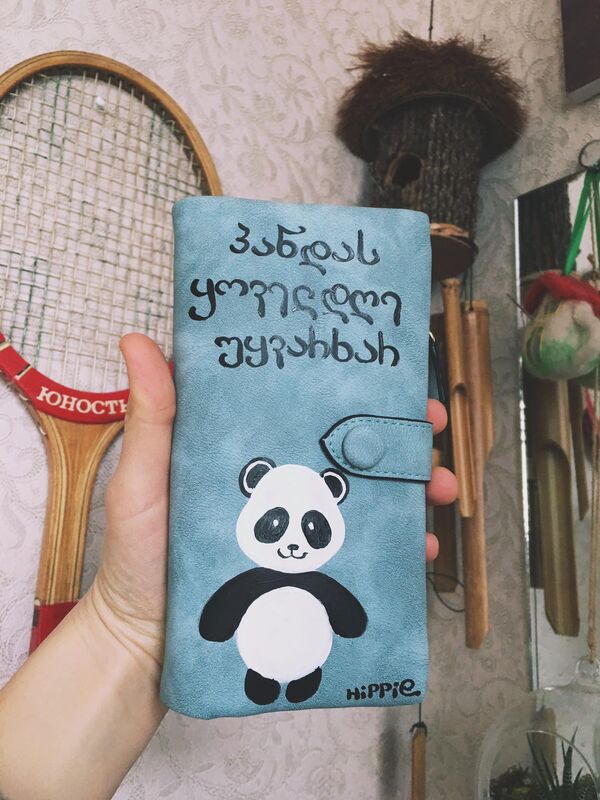 პანდას
ყოველდღე
უყვარხარ
HiPPiE
ЮНОСТЬ